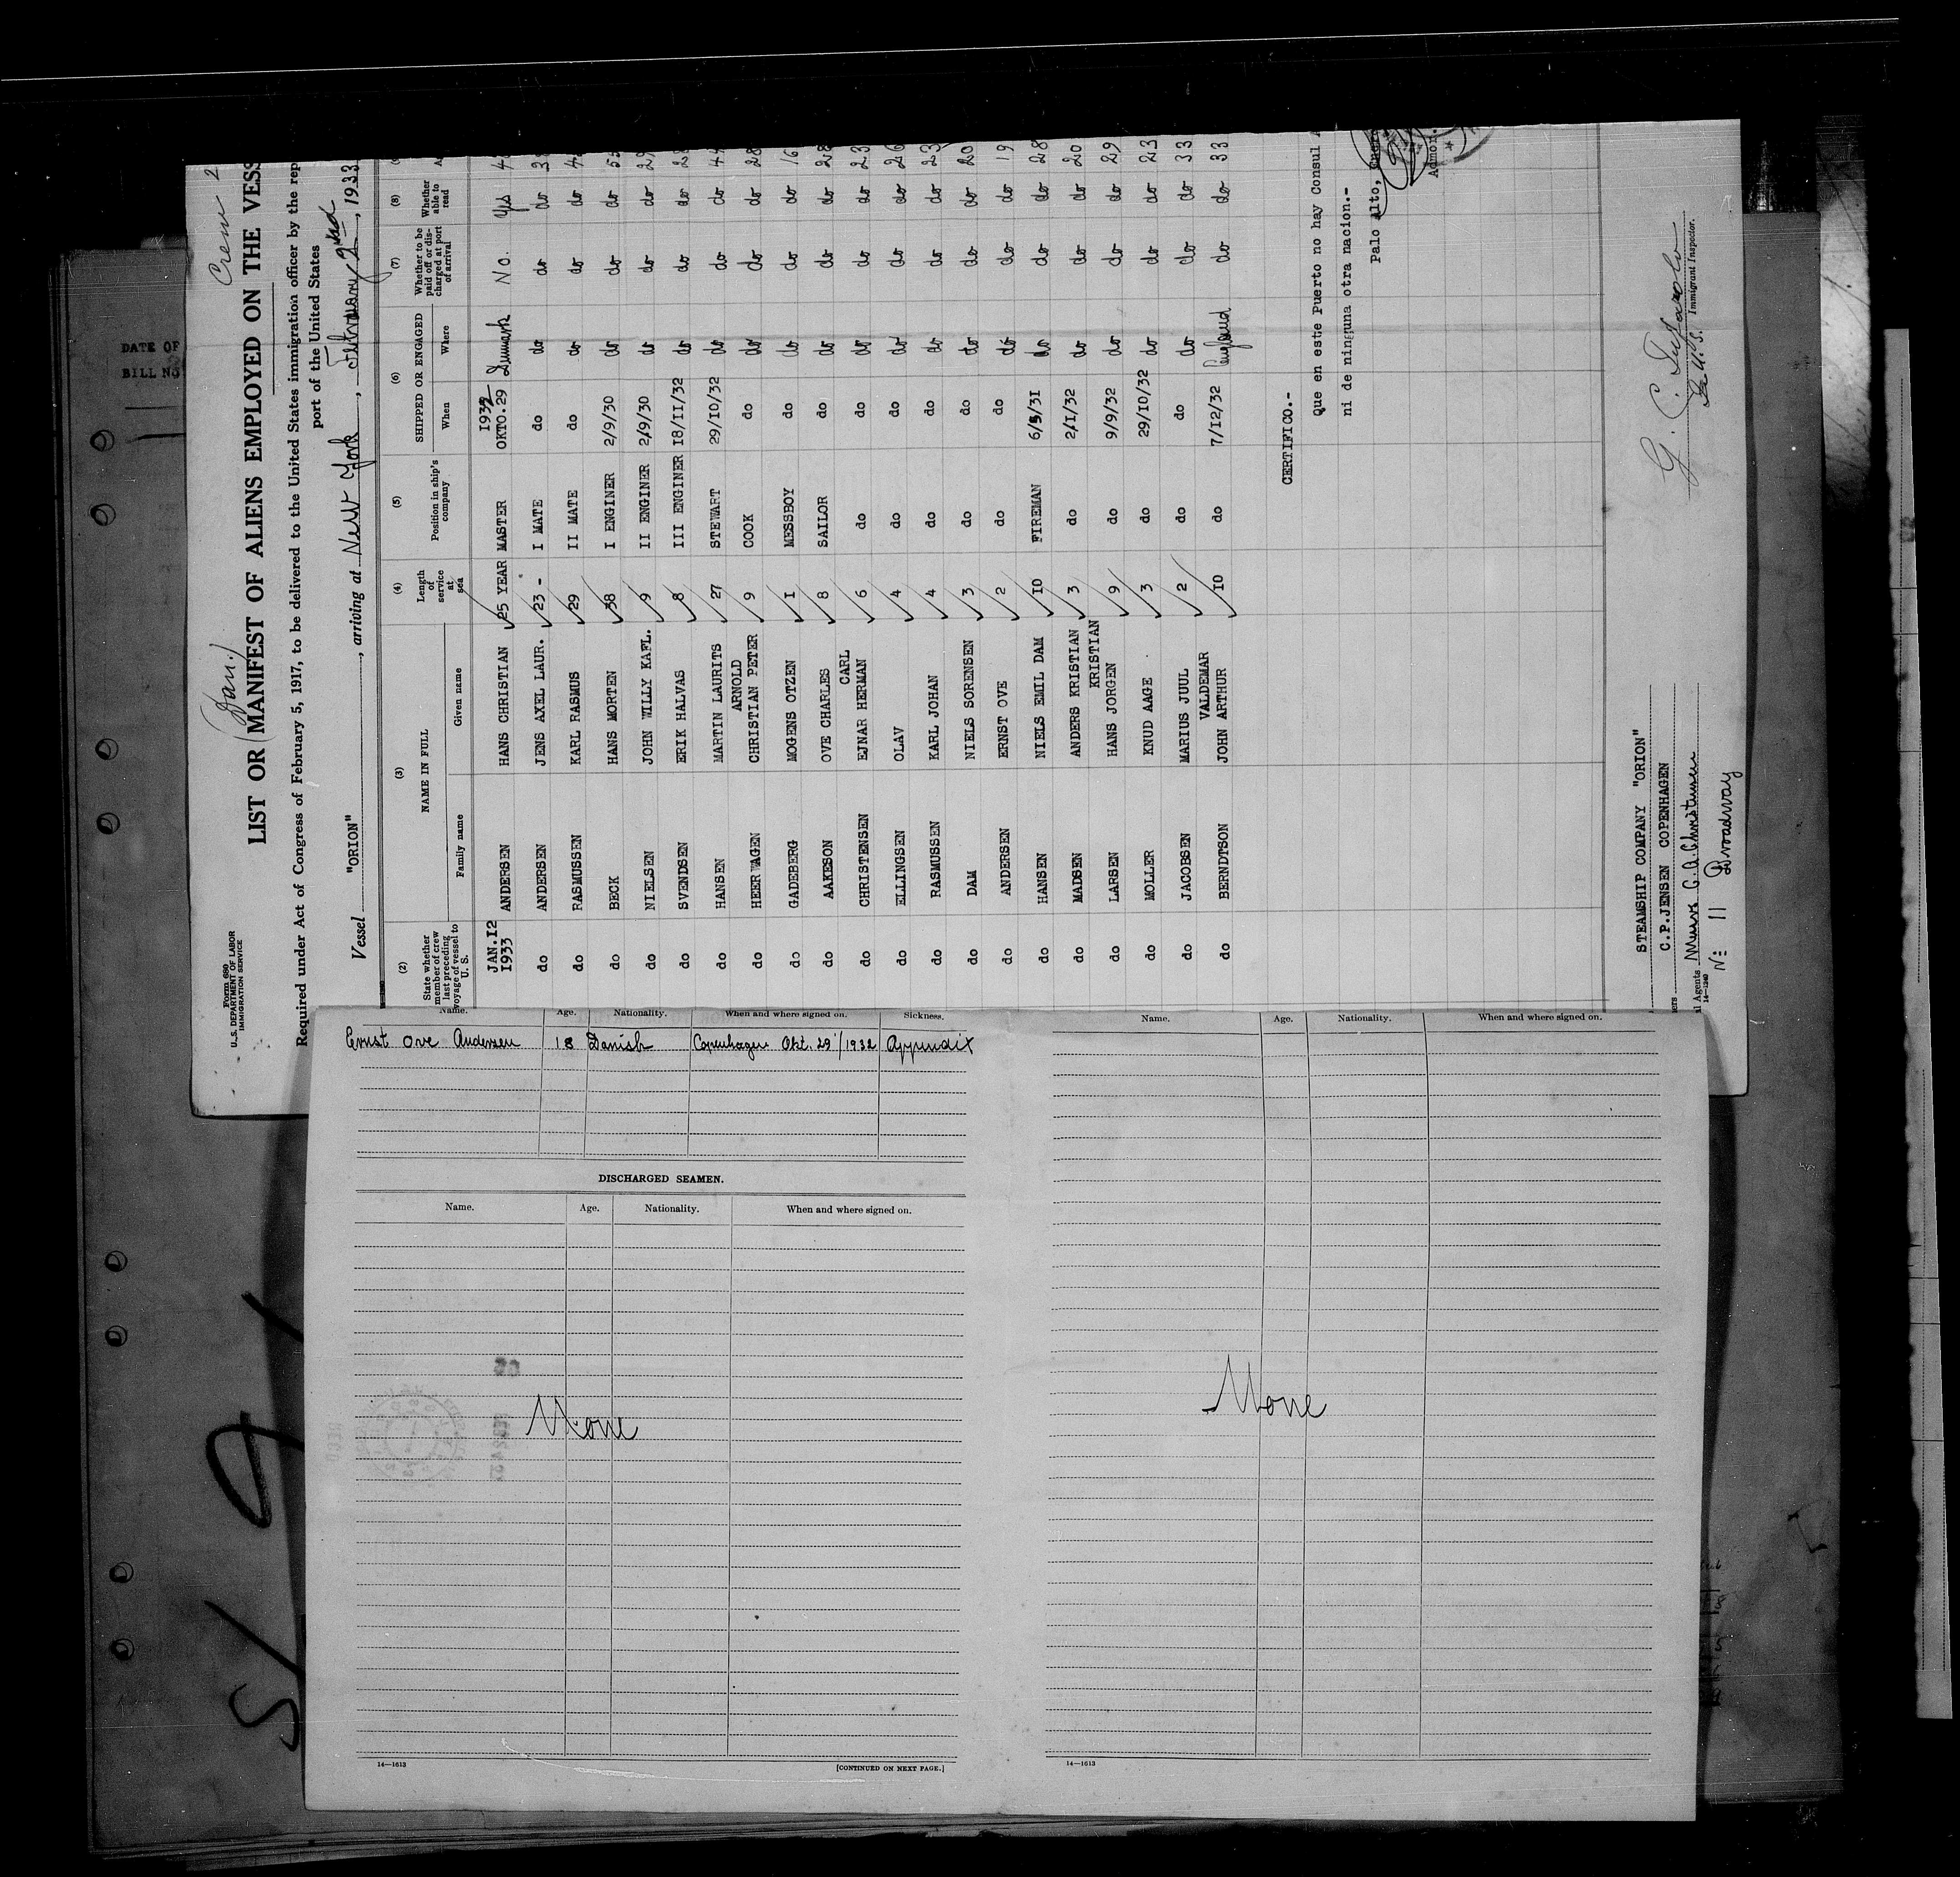 DATE OF
BILL NO
(Dan.) Crew 2
Form 680
U.S. DEPARTMENT OF LABOR
IMMIGRATION SERVICE
LIST OR MANIFEST OF ALIENS EMPLOYED ON THE VESS
Required under Act of Congress of February 5, 1917, to be delivered to the United States immigration officer by the rep
port of the United States
Vessel "ORION", arriving at New York, February 2nd, 1933
(2) State whether member of crew last preceding voyage of vessel to U. S.
(3) NAME IN FULL
Family name Given name
(4) Length of service at sea
(5) Position in ship's company
(6) SHIPPED OR ENGAGED
When Where
(7) Whether to be paid off or discharged at port of arrival
(8) Whether able to read
JAN.I2 I933 ANDERSEN HANS CHRISTIAN 25 YEAR MASTER 1932 OKTO.29 Denmark No. Yes 4
do ANDERSEN JENS AXEL LAUR. 23 - I MATE do do do do 3
do RASMUSSEN KARL RASMUS 29 II MATE do do do do 4
do BECK HANS MORTEN 38 I ENGINER 2/9/30 do do do 5
do NIELSEN JOHN WILLY KAFL. 9 II ENGINER 2/9/30 do do do 29
do SVENDSEN ERIK HALVAS 8 III ENGINER I8/II/32 do do do 28
do HANSEN MARTIN LAURITS 27 STEWART 29/IO/32 do do do 44
do HEERWAGEN ARNOLD CHRISTIAN PETER 9 COOK do do do do 28
do GADEBERG MOGENS OTZEN I MESSBOY do do do do 16
do AAKESON OVE CHARLES 8 SAILOR do do do do 28
do CHRISTENSEN CARL EJNAR HERMAN 6 do do do do do 23
do ELLINGSEN OLAV 4 do do do do do 26
do RASMUSSEN KARL JOHAN 4 do do do do do 23
do DAM NIELS SORENSEN 3 do do do do do 20
do ANDERSEN ERNST OVE 2 do do do do do 19
do HANSEN NIELS EMIL DAM IO FIREMAN 6/5/31 do do do 28
do MADSEN ANDERS KRISTIAN 3 do 2/I/32 do do do 20
do LARSEN KRISTIAN HANS JORGEN 9 do 9/9/32 do do do 29
do MOLLER KNUD AAGE 3 do 29/IO/32 do do do 23
do JACOBSEN MARIUS JUUL 2 do do do do do 33
do BERNDTSON VALDEMAR JOHN ARTHUR IO do 7/I2/32 England do do 33
CERTIFICO.-
que en este Puerto no hay Consul
ni de ninguna otra nacion.-
Palo Alto,
Admor.
STEAMSHIP COMPANY "ORION"
C.P.JENSEN COPENHAGEN
Agents
No 11 Broadway
14-1240
Immigrant Inspector.
Name. Age. Nationality. When and where signed on. Sickness.
Ernst Ove Andersen 18 Danish Copenhagen Okt. 29/1932 Appendix
DISCHARGED SEAMEN.
Name. Age. Nationality. When and where signed on.
None
14—1613
[CONTINUED ON NEXT PAGE.]
Name. Age. Nationality. When and where signed on.
None
14—1613